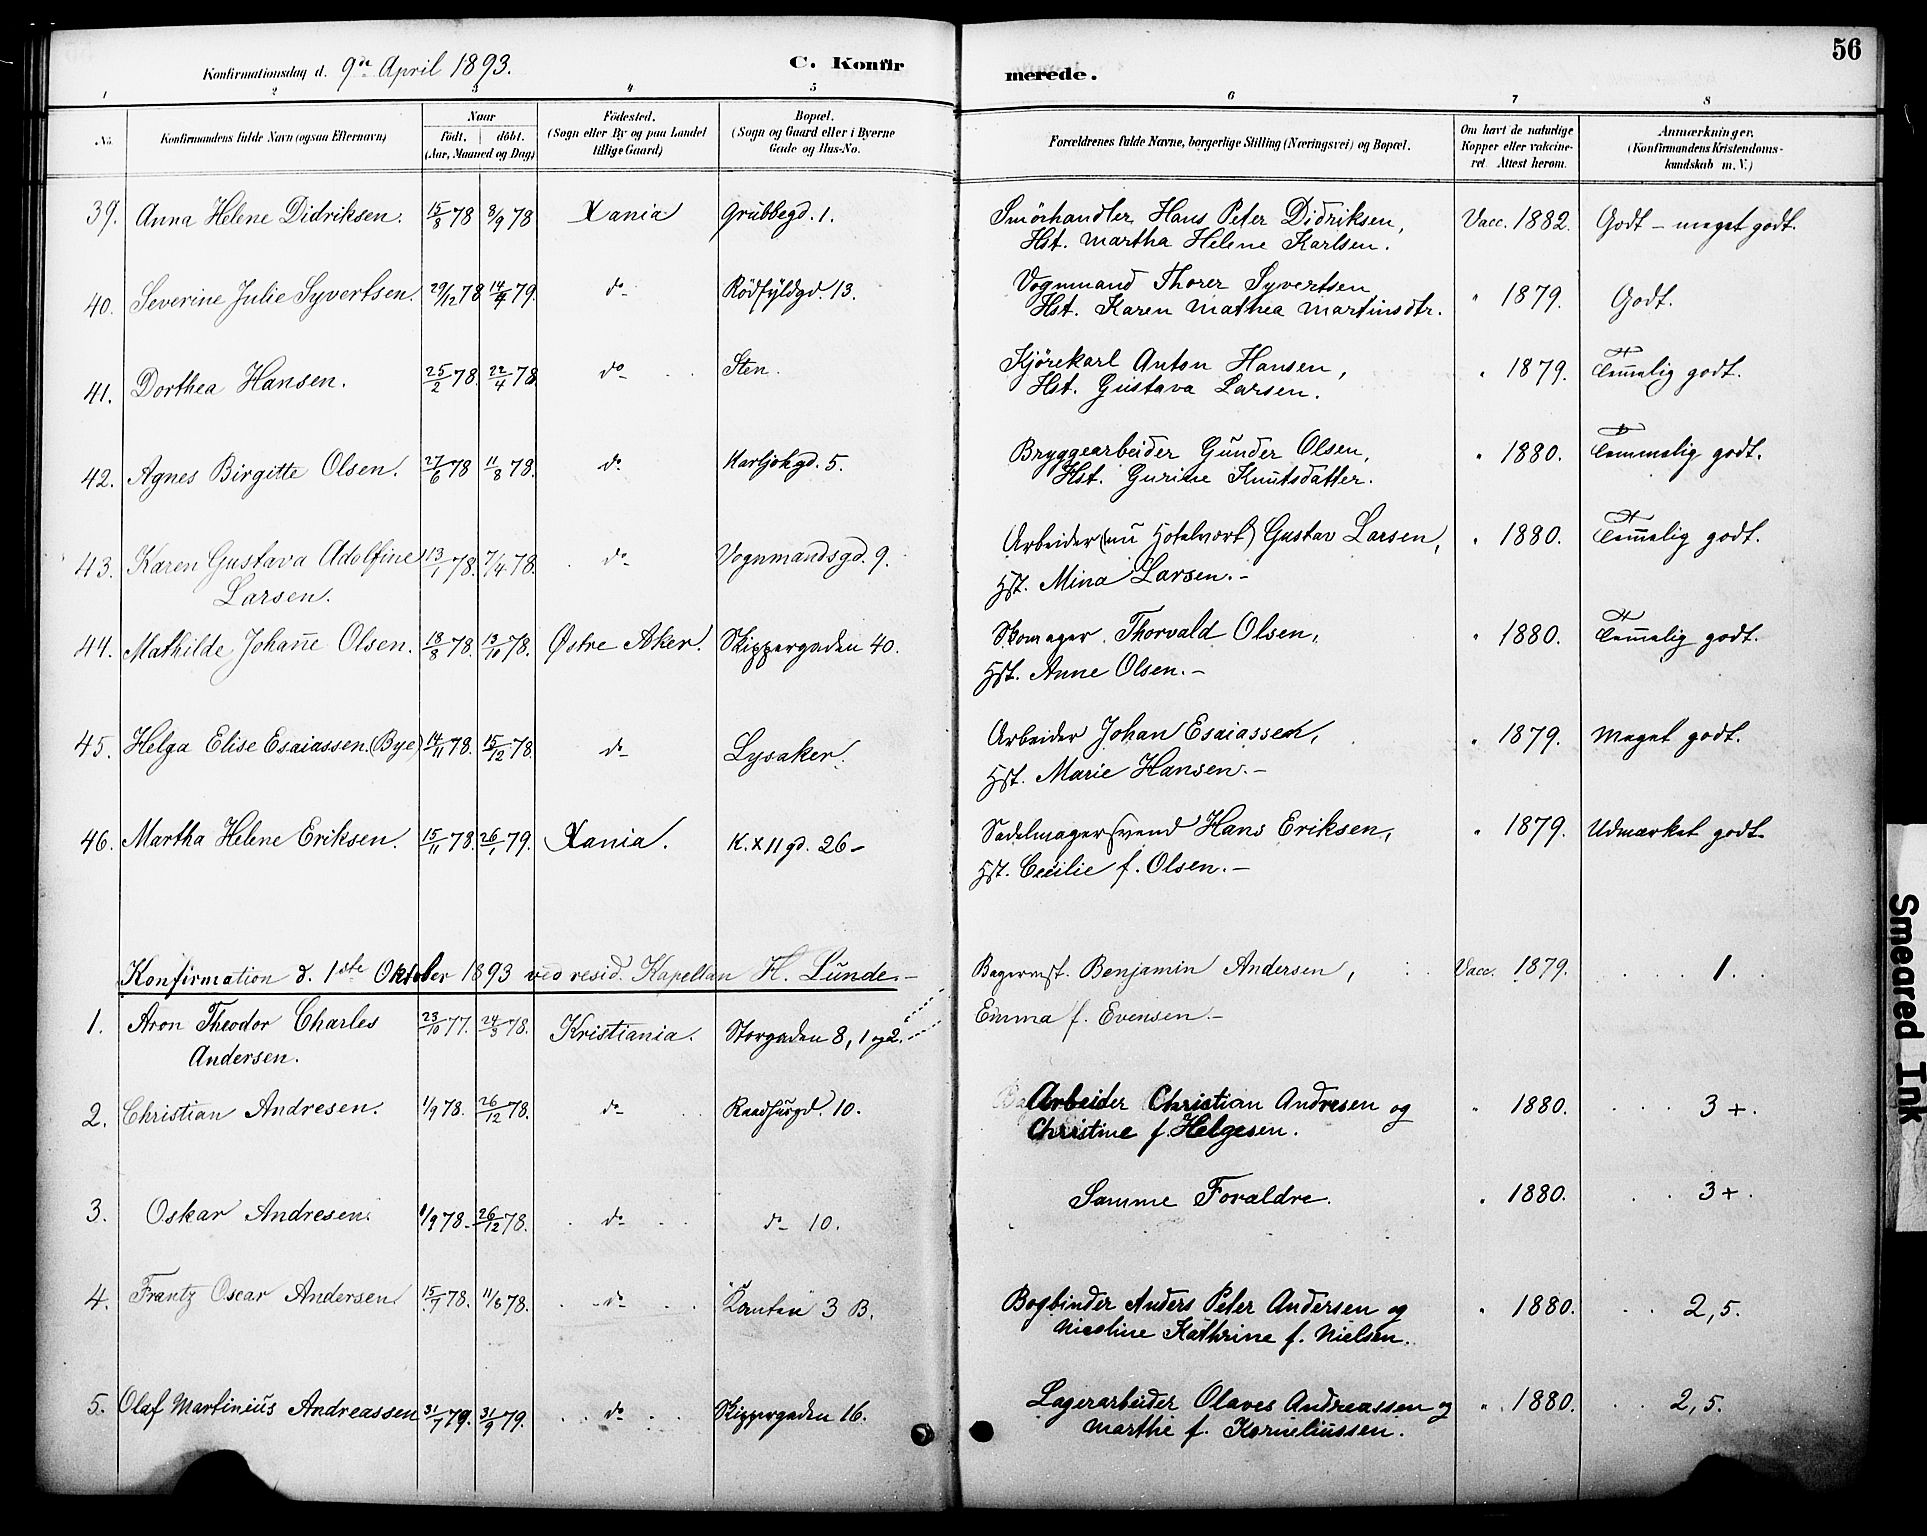 Konfirmationsdag d. 9de April 1893. C. Konfir merede. 56
1 2 3 4 5 6 7 8
No. Konfirmandens fulde Navn (ogsaa Efternavn) Naar født. døbt. (Aar, Maaned og Dag) Fødested. (Sogn eller By og paa Landet tillige Gaard) Bopæl. (Sogn og Gaard eller i Byerne Gade og Hus-No. Forældrenes fulde Navne, borgerlige Stilling (Næringsvei) og Bopæl. Om havt de naturlige Kopper eller vakcineret. Attest herom. Anmærkninger. (Konfirmandens Kristendomskundskab m. V.)
39. Anna Helene Didriksen. 15/8 78 8/9 78 Xania Grubbegd. 1. Smörhandler Hans Peter Didriksen, Vacc. 1882. Godt - meget godt.
Hst. Martha Helene Karlsen.
40. Severine Julie Syvertsen. 29/12 78 14/4 79. do Rödfyldgd. 13. Vognmand Thorer Syvertsen " 1879. Godt.
Hst. Karen Mathea Martinsdtr.
41. Dorthea Hansen. 25/2 78. 22/4 78. do Sten. Kjörekarl Anton Hansen, " 1879. Temelig godt.
Hst. Gustava Larsen.
42. Agnes Birgitte Olsen. 27/6 78 11/8 78. do Karljohgd. 5. Bryggearbeider Gunder Olsen, " 1880. Temmelig godt.
Hst. Gurine Knutsdatter.
43. Karen Gustava Adolfine 13/1 78. 7/4 78. do Vognmandsgd. 9. Arbeider (nu Hotelvært) Gustav Larsen, " 1880. Temelig godt.
Larsen. Hst. Mina Larsen. -
44. Mathilde Johane Olsen. 18/8 78. 13/10 78. Østre Aker. Skippergaden 40. Skomager Thorvald Olsen, " 1880. Temelig godt.
Hst. Anne Olsen. -
45. Helga Elise Esaiassen. (Bye) 14/11 78. 15/12 78. do Lysaker. Arbeider Johan Esaiassen, " 1879. Meget godt.
Hst. Marie Hansen. -
46. Martha Helene Eriksen. 15/11 78. 26/1 79. Xania. K. X 11 gd. 26 - Sadelmagersvend Hans Eriksen, " 1879. Udmærket godt.
Hst. Cecilie f. Olsen. -
Konfirmation d. 1ste Oktober 1893 ved resid. Kapellan H. Lunde. -
1. Aron Theodor Charles 23/10 77. 24/3 78. Kristiania. Storgaden 8, 1 og 2. Bagermst. Benjamin Andersen, Vacc. 1879. 1.
Andersen. Emma f. Evensen. -
2. Christian Andresen. 1/9 78. 26/12 78. do Raadhusgd. 10. Arbeider Christian Andresen og " 1880. 3+.
Christine f. Helgesen.
3. Oskar Andresen. 1/9 78. 26/12 78. do do 10. Samme Foraldre. " 1880. 3+.
4. Frantz Oscar Andersen. 15/7 78. 11/8 78. do 3 B. Bogbinder Anders Peter Andersen og " 1880. 2,5.
Nicoline Kathrine f. Nielsen.
5. Olaf Martinius Andreassen 31/7 79. 31/9 79. do Skippergaden 16. Lagerarbeider Olaves Andreassen og " 1880. 2,5.
Marthe f. Korneliussen.
Smeared Ink